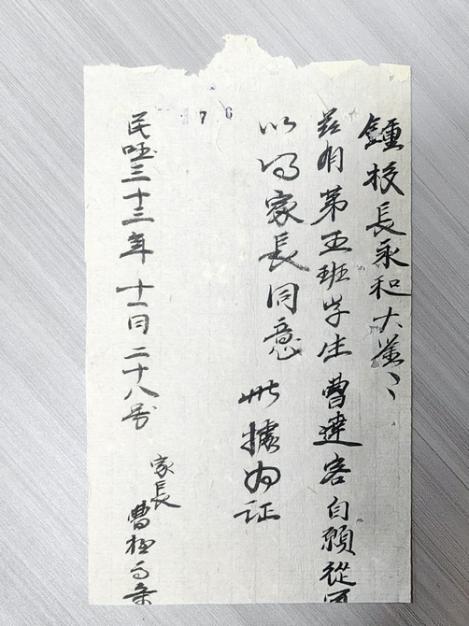 鍾校長永和大鉴
兹有第五班学生曹建客自願從軍
以得家長同意 此據为証
民国三十三年十一月二十八号
家長
曹
76